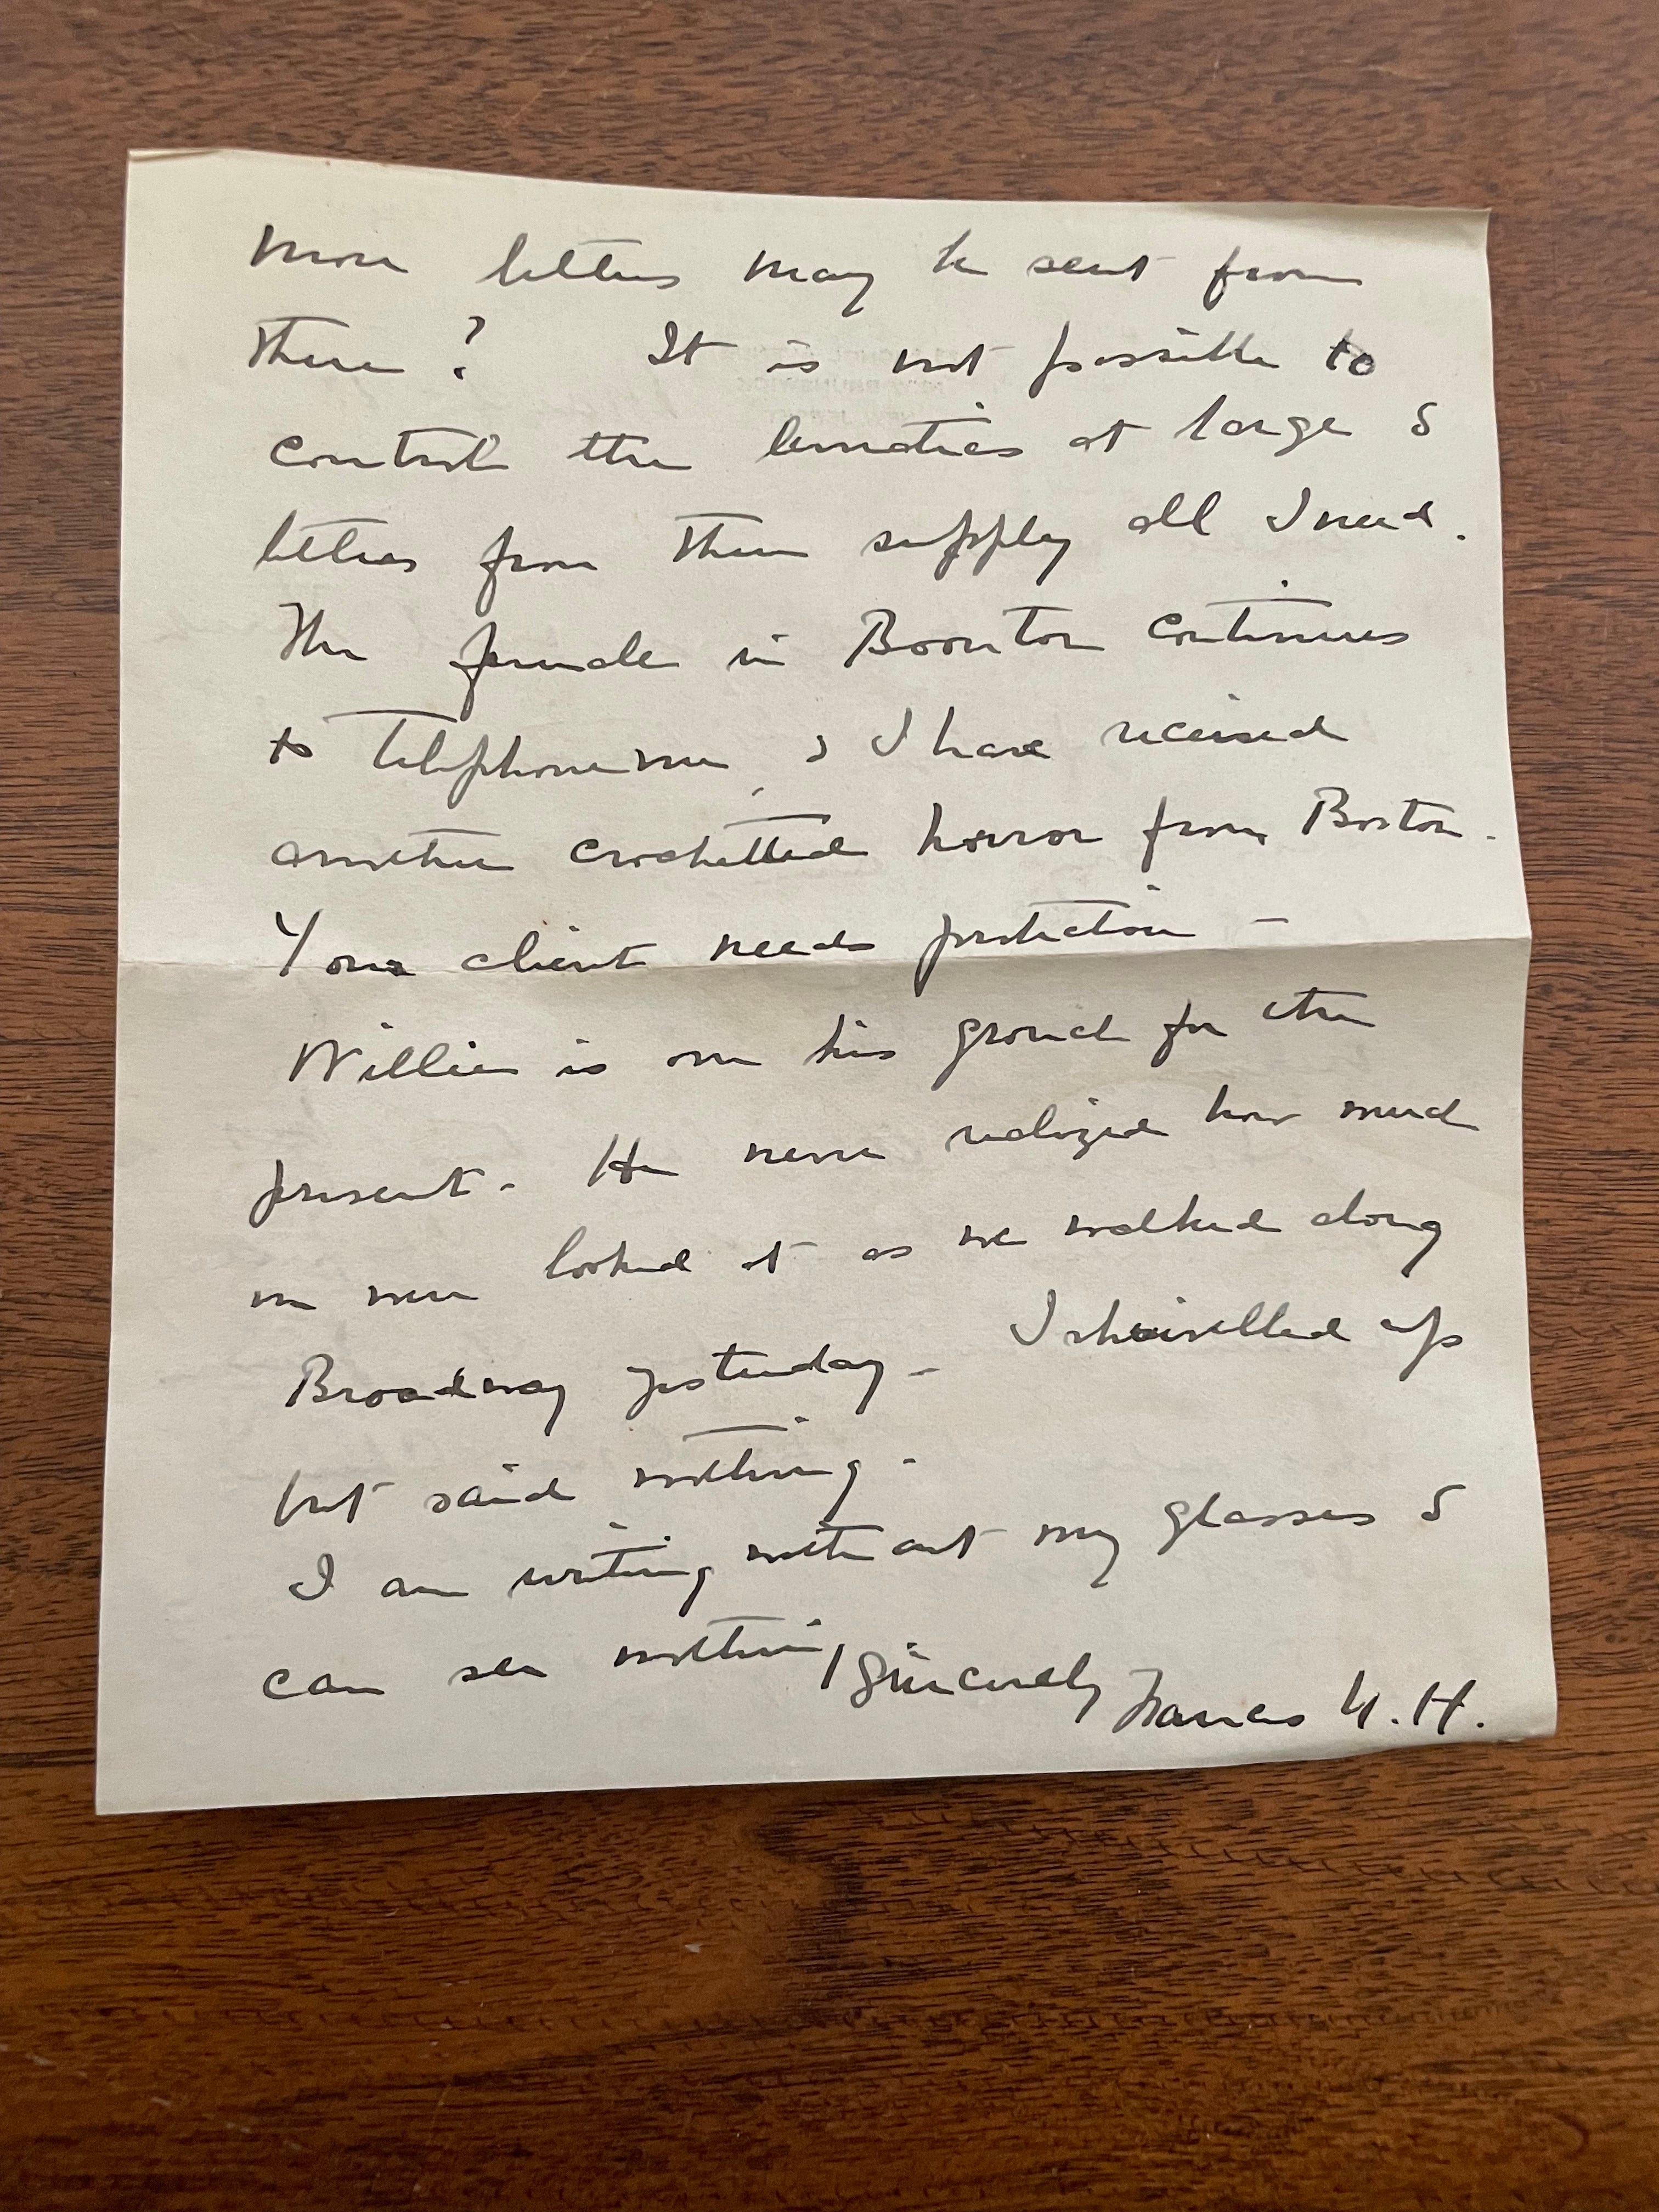 more letters may be sent from
there? It is not possible to
control the lunatics at large &
letters from them supply all I need.
The female in Boonton continues
to telephone me, & I have received
another crochetted horror from Boston.
Your client needs protection -
Willie is on his ground for the
present. He never realized how much
we were looked at as we walked along
Broadway yesterday. I shrivelled up
but said nothing.
I am writing without my glasses &
can see nothing Sincerely Frances H.